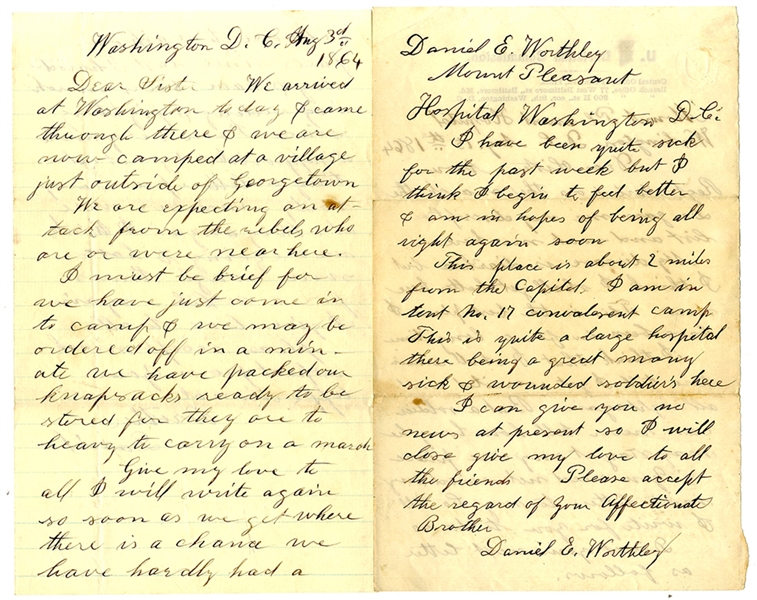 Washington D. C. Aug 3d
1864
Dear Sister We arrived
at Washington today & came
through there & we are
now camped at a village
just outside of Georgetown
We are expecting an at-
tack from the rebels who
are or were near here.
I must be brief for
we have just come in
to camp & we may be
ordered off in a min-
ute we have packed our
knapsacks ready to be
stored for they are to
heavy to carry on a march
Give my love to
all I will write again
so soon as we get where
there is a chance we
have hardly had a
Daniel E. Worthley
Mount Pleasant
Hospital Washington D.C.
I have been quite sick
for the past week but I
think I begin to feel better
& am in hopes of being all
right again soon
This place is about 2 miles
from the Capitol. I am in
tent No. 17 convalesent camp
This is quite a large hospital
there being a great many
sick & wounded soldiers here
I can give you no
news at present so I will
close give my love to all
the friends Please accept
the regard of your Affectionate
Brother
Daniel E. Worthley